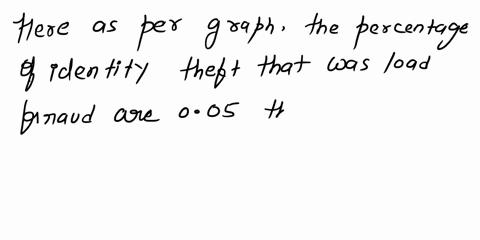 Here as per graph, the percentage
of identity theft that was load
fraud are 0.05 th